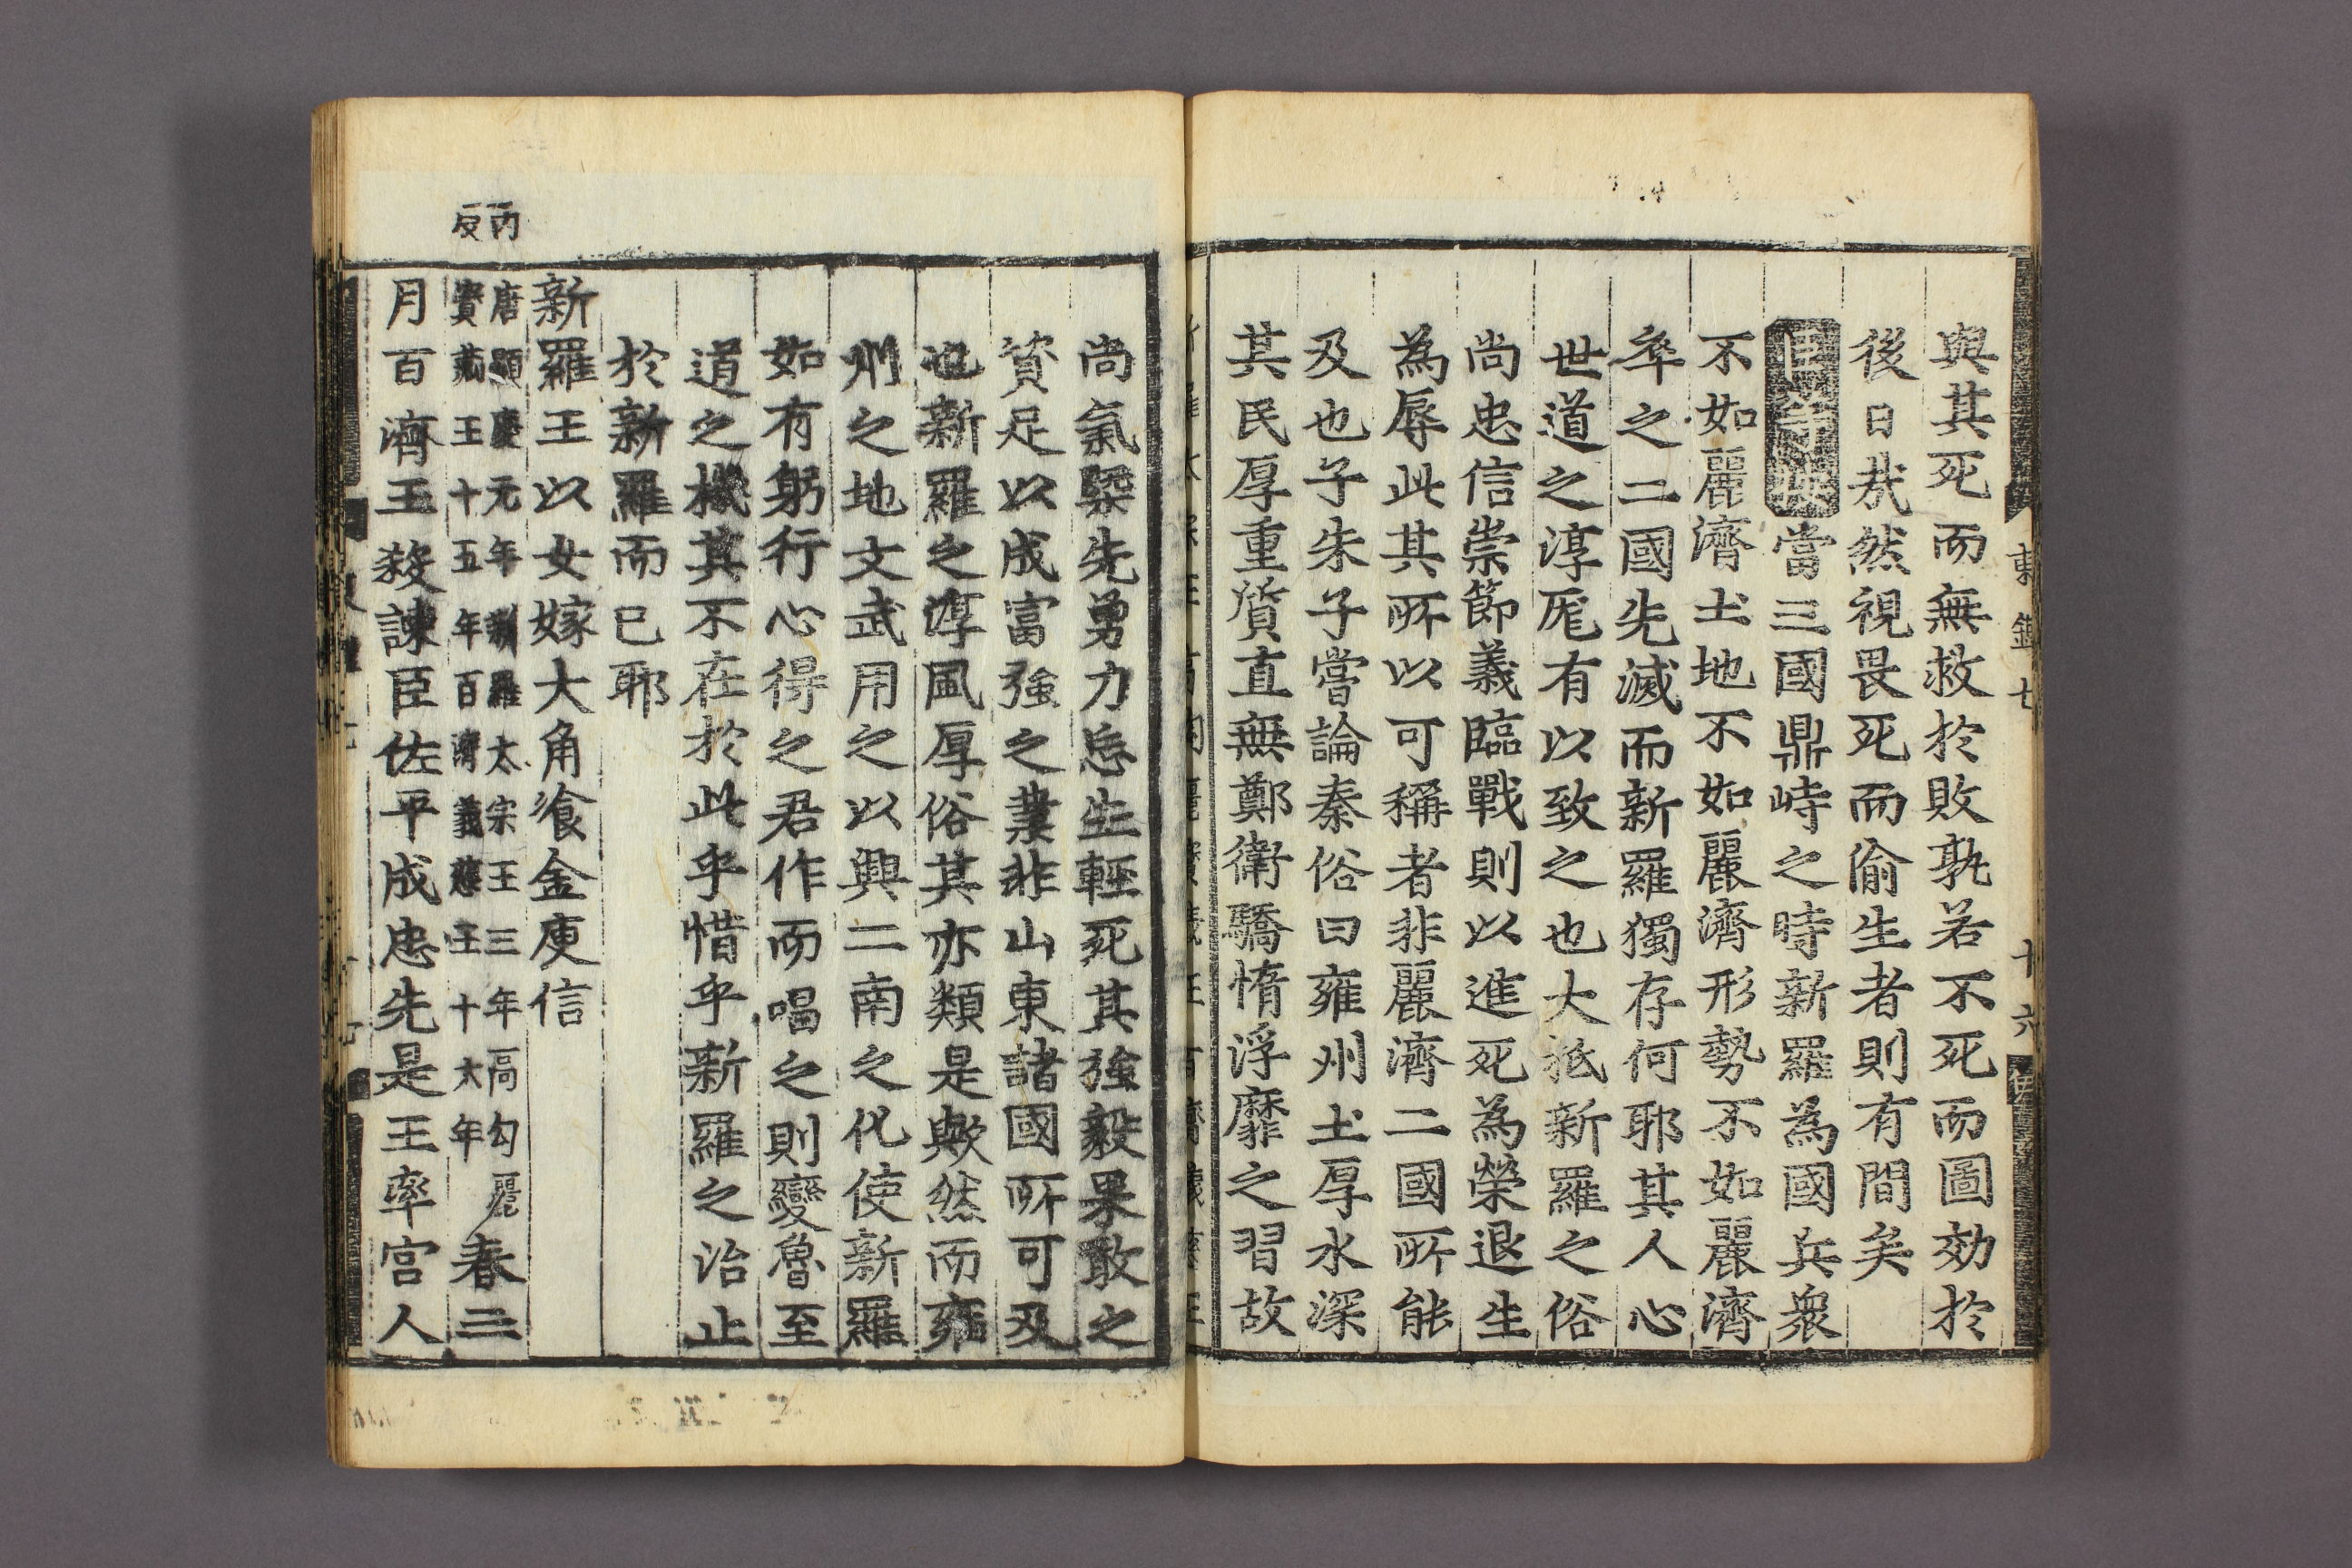 東鑑七
十六
與其死而無救於敗孰若不死而圖効於
後日㢤然視畏死而偷生者則有間矣
臣等按當三國鼎峙之時新羅為國兵衆
不如麗濟土地不如麗濟形勢不如麗濟
卒之二國先滅而新羅獨存何耶其人心
世道之淳厖有以致之也大抵新羅之俗
尚忠信崇節義臨戰則以進死為榮退生
為辱此其所以可稱者非麗濟二國所能
及也子朱子嘗論秦俗曰雍州土厚水深
其民厚重質直無鄭衛驕惰浮靡之習故
尚氣槩先勇力忘生輕死其強毅果敢之
資足以成富強之業非山東諸國所可及
也新羅之淳風厚俗其亦類是歟然而雍
州之地文武用之以興二南之化使新羅
如有躬行心得之君作而唱之則變魯至
道之機其不在於此乎惜乎新羅之治止
於新羅而已耶
新羅王以女嫁大角飡金庾信
丙辰
唐顯慶元年新羅太宗王三年高勾麗
寶藏王十五年百濟義慈王十六年
春三
月百濟王殺諫臣佐平成忠先是王率宮人